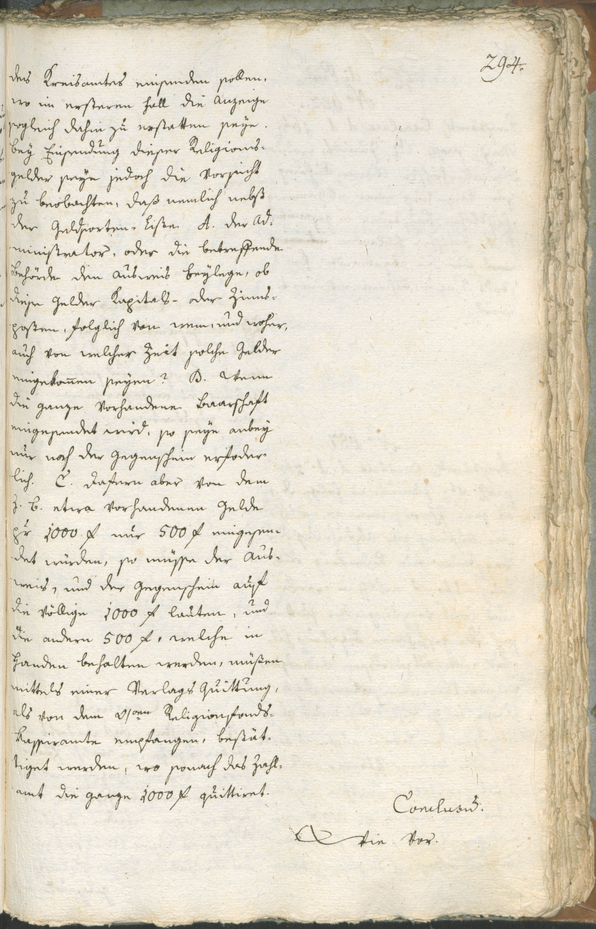 294.
des Kreisamtes einsenden sollen,
wo im ersteren Fall die Anzeige
sogleich dahin zu erstatten seye.
bey Einsendung dieser Religions-
gelder seye jedoch die Vorsicht
zu beobachten, daß nemlich nebst
der Geldsorten-Liste A. der Ad-
ministrator, oder die betreffende
Behörde den Ausweis beylege, ob
diese Gelder Kapitals- oder Zinns-
posten, folglich von wem, und woher,
auch von welcher Zeit solche Gelder
eingekommen seyen? B. Wenn
die ganze vorhandene Baarschaft
eingesendet wird, so seye anbey
nur noch der Gegenschein erfoder-
lich. C. dafern aber von dem
z. B. etwa vorhandenen Gelde
pr 1000 f nur 500 f eingesen-
det würden, so müsse der Aus-
weis, und der Gegenschein auf
die völlige 1000 f lauten, und
die andern 500 f, welche in
Handen behalten werden, müßen
mittels einer Verlags Quittung,
als von dem Religionsfonds-
Kassieramte empfangen, bestät-
tiget werden, wo sonach das Zahl-
amt die ganze 1000 f quittiret.
Conclusum.
Wie Vor.